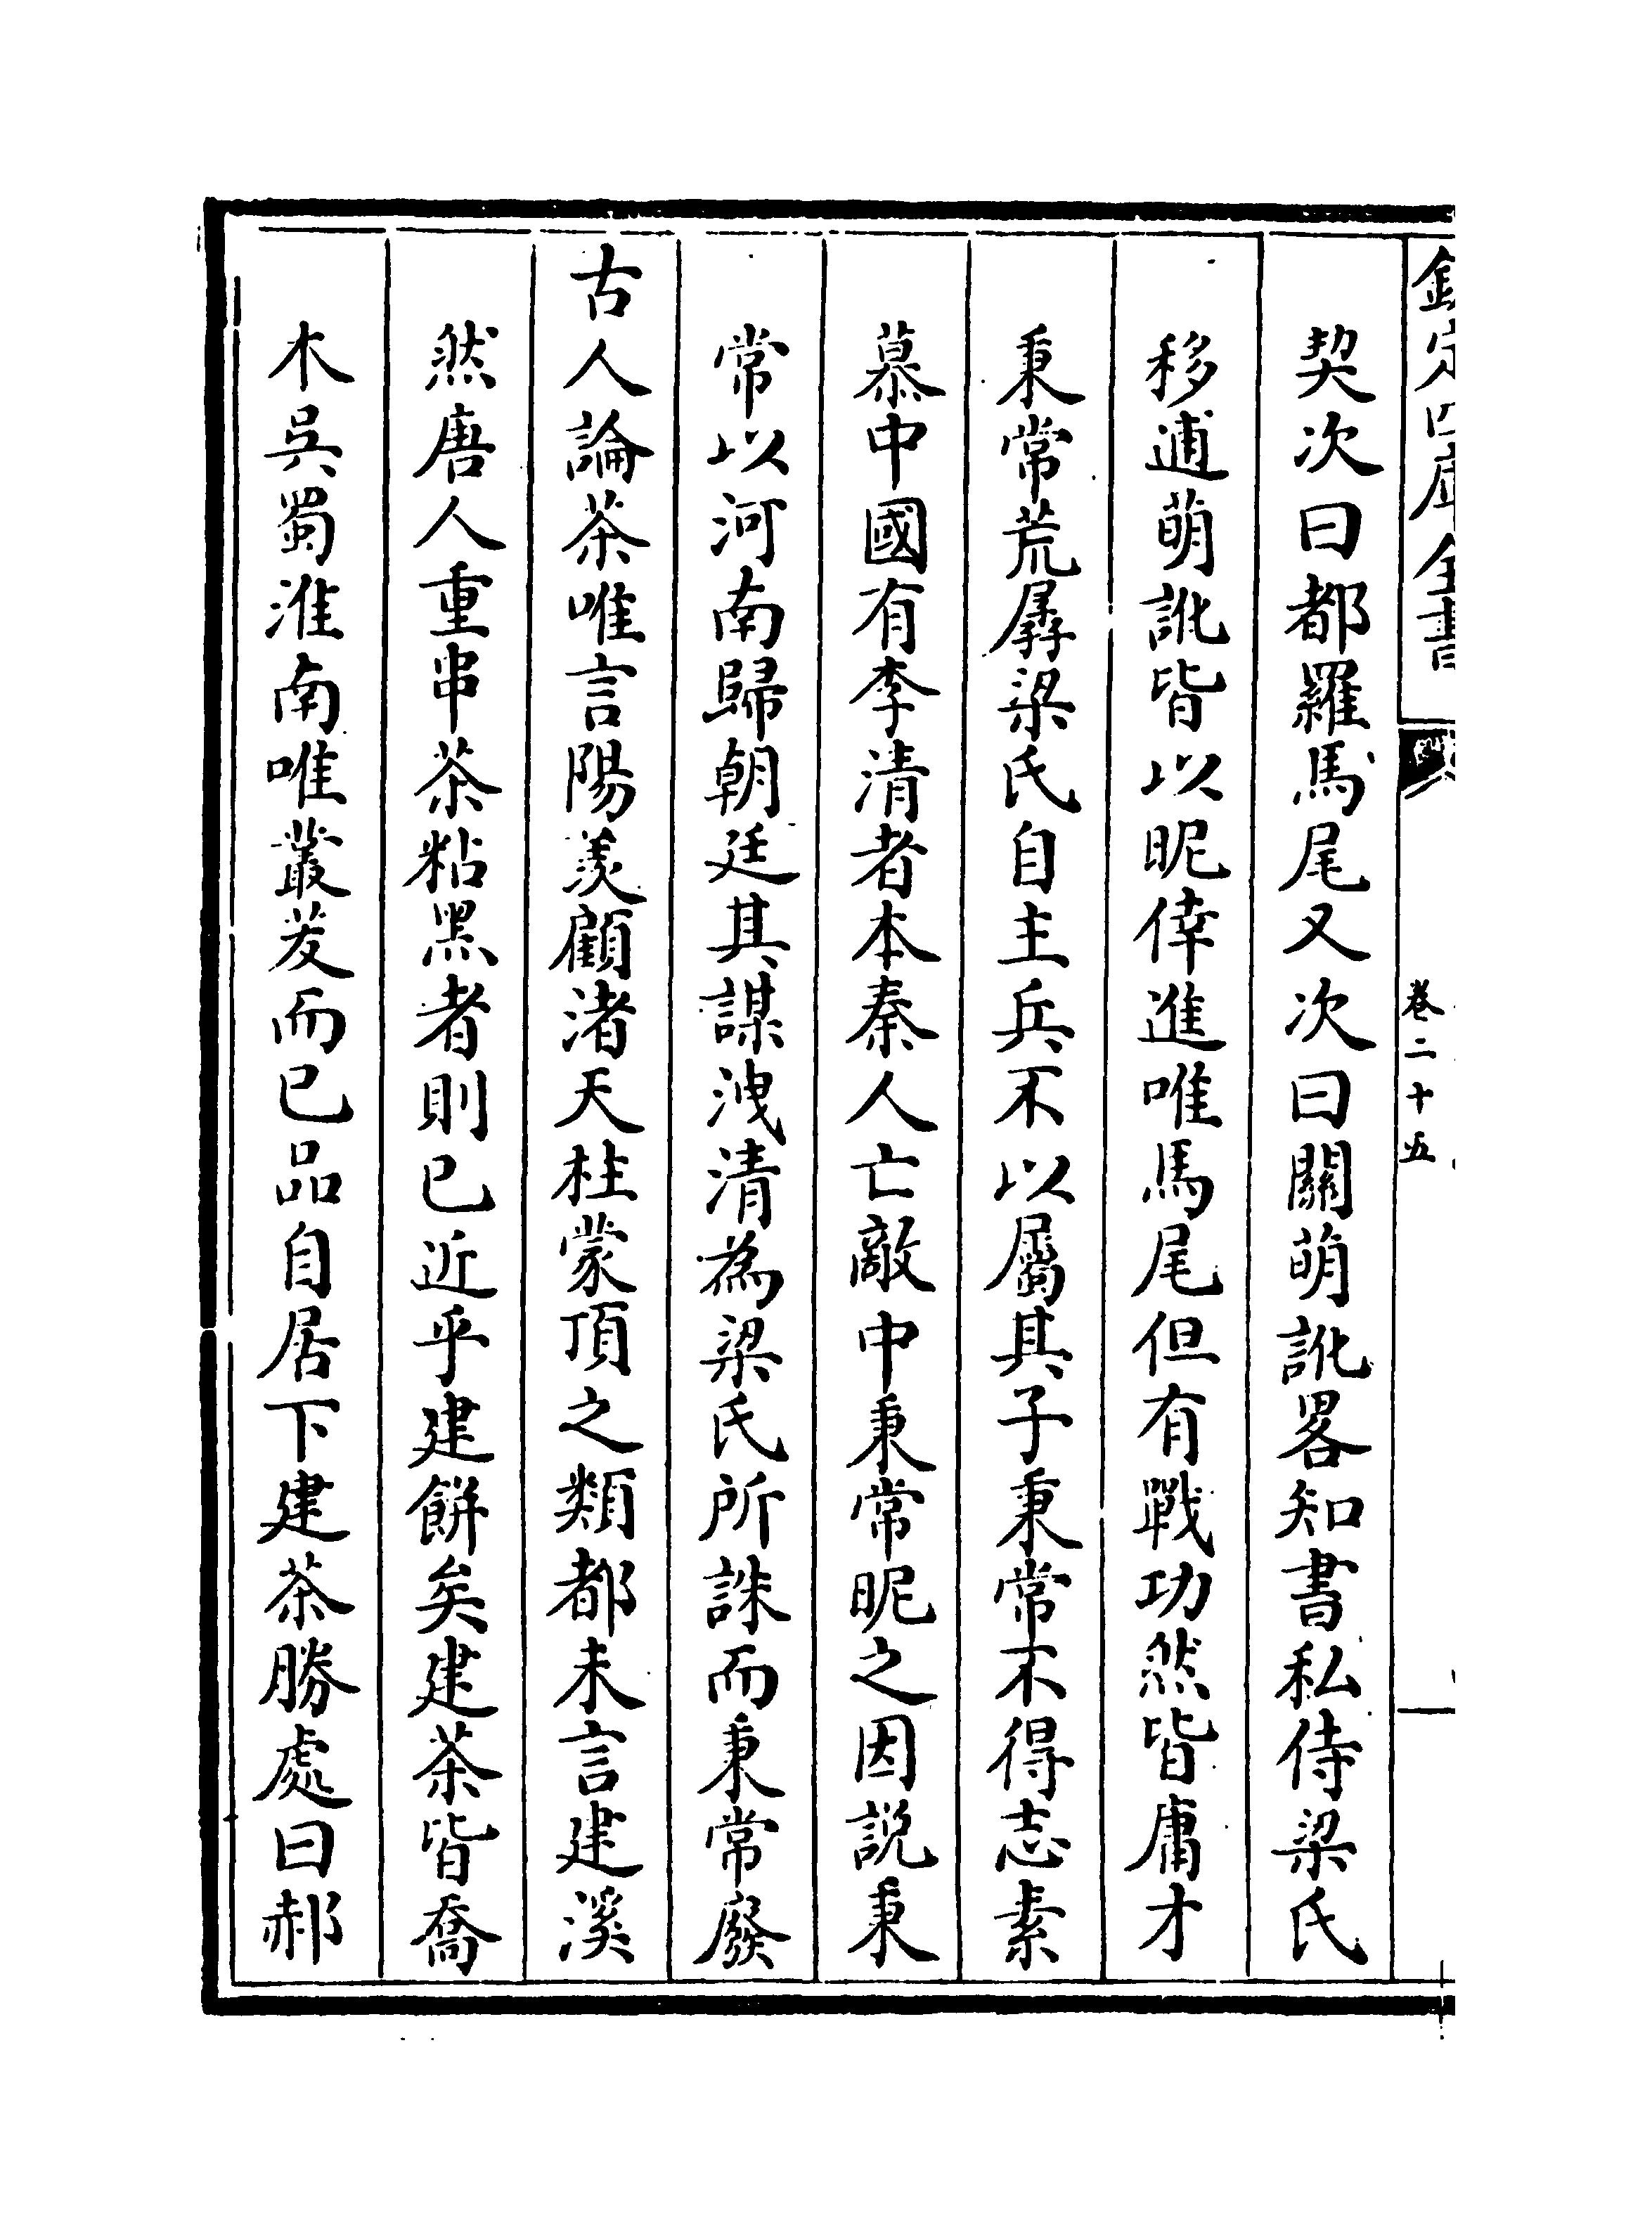 欽定四庫全書
卷二十五
契次曰都羅馬尾又次曰關萌訛畧知書私侍梁氏
移逋萌訛皆以昵倖進唯馬尾但有戰功然皆庸才
秉常荒孱梁氏自主兵不以屬其子秉常不得志素
慕中國有李清者本秦人亡敵中秉常昵之因説秉
常以河南歸朝廷其謀洩清為梁氏所誅而秉常廢
古人論茶唯言陽羨顧渚天柱蒙頂之類都未言建溪
然唐人重串茶粘黑者則已近乎建餅矣建茶皆喬
木吳蜀淮南唯叢茇而已品自居下建茶勝處曰郝